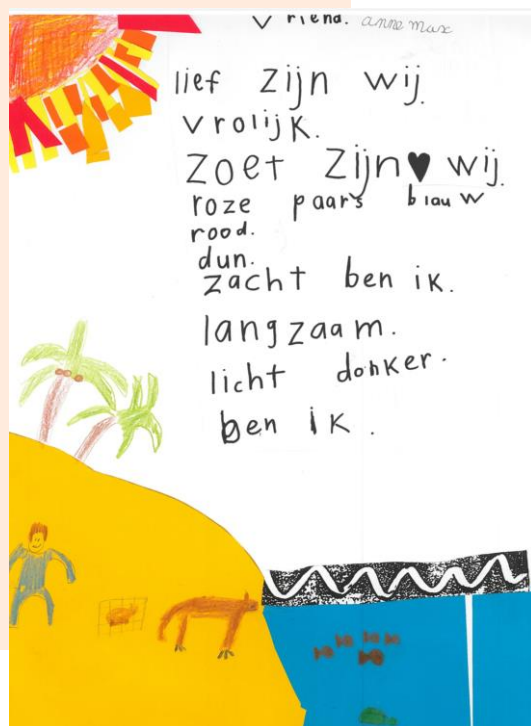 vriend. anne max
lief zijn wij.
vrolijk.
zoet zijn♥wij.
roze paars blauw
rood.
dun.
zacht ben ik.
langzaam.
licht donker.
ben ik.